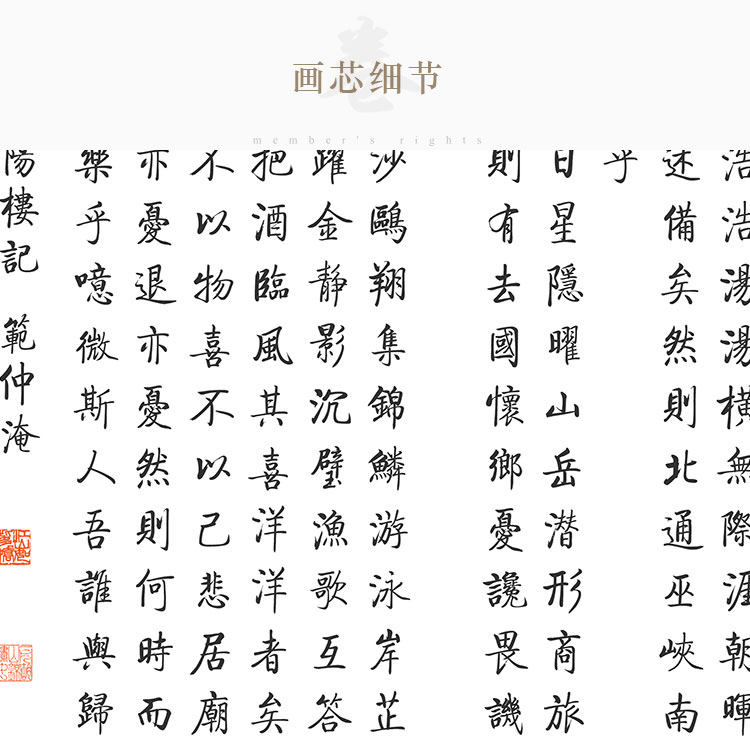 画芯细节
member's rights
浩浩湯湯橫無際涯朝暉
述備矣然則北通巫峽南
乎
日星隱曜山岳潜形商旅
則有去國懷鄉憂讒畏譏
沙鷗翔集錦鱗游泳岸芷
躍金静影沉璧漁歌互答
把酒臨風其喜洋洋者矣
不以物喜不以己悲居廟
亦憂退亦憂然則何時而
樂乎噫微斯人吾誰與歸
陽樓記 範仲淹